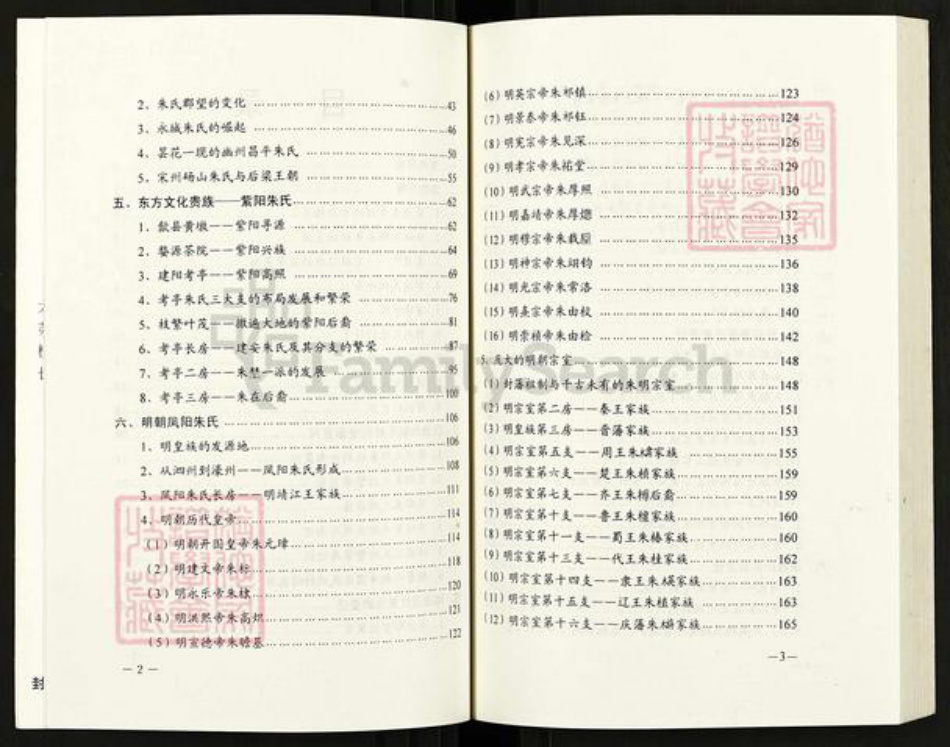 2、朱氏郡望的变化 ……………………43
3、永城朱氏的崛起 ……………………46
4、昙花一现的幽州昌平朱氏 ……………………50
5、宋州砀山朱氏与后梁王朝 ……………………55
五、东方文化贵族——紫阳朱氏……………………62
1、歙县黄墩——紫阳寻源 ……………………62
2、婺源茶院——紫阳兴族 ……………………64
3、建阳考亭——紫阳高照 ……………………69
4、考亭朱氏三大支的布局发展和繁荣 ……………………76
5、枝繁叶茂——撒遍大地的紫阳后裔 ……………………81
6、考亭长房——建安朱氏及其分支的繁荣 ……………………87
7、考亭二房——朱埜一派的发展 ……………………95
8、考亭三房——朱在后裔……………………100
六、明朝凤阳朱氏 ……………………106
1、明皇族的发源地……………………106
2、从泗州到濠州——凤阳朱氏形成……………………108
3、凤阳朱氏长房——明靖江王家族……………………111
4、明朝历代皇帝……………………114
(1) 明朝开国皇帝朱元璋……………………114
(2) 明建文帝朱标……………………118
(3) 明永乐帝朱棣……………………120
(4) 明洪熙帝朱高炽……………………121
(5) 明宣德帝朱瞻基……………………122
— 2 —
(6) 明英宗帝朱祁镇……………………123
(7) 明景泰帝朱祁钰……………………124
(8) 明宪宗帝朱见深……………………126
(9) 明孝宗帝朱祐堂……………………129
(10) 明武宗帝朱厚照 ……………………130
(11) 明嘉靖帝朱厚熜 ……………………132
(12) 明穆宗帝朱载 ……………………135
(13) 明神宗帝朱翊钧 ……………………136
(14) 明光宗帝朱常洛 ……………………138
(15) 明熹宗帝朱由校 ……………………140
(16) 明崇祯帝朱由检 ……………………142
5、庞大的明朝宗室……………………148
(1) 封藩祖制与千古未有的朱明宗室……………………148
(2) 明宗室第二房——秦王家族……………………151
(3) 明皇族第三房——晋藩家族……………………153
(4) 明宗室第五支——周王朱橚家族 ……………………155
(5) 明宗室第六支——楚王朱桢家族……………………159
(6) 明宗室第七支——齐王朱榑后裔……………………159
(7) 明宗室第十支——鲁王朱檀家族……………………160
(8) 明宗室第十一支——蜀王朱椿家族……………………160
(9) 明宗室第十三支——代王朱桂家族……………………162
(10) 明宗室第十四支——肃王朱楧家族……………………163
(11) 明宗室第十五支——辽王朱植家族 ……………………163
(12) 明宗室第十六支——庆藩朱㮵家族……………………165
—3—
封
FamilySearch